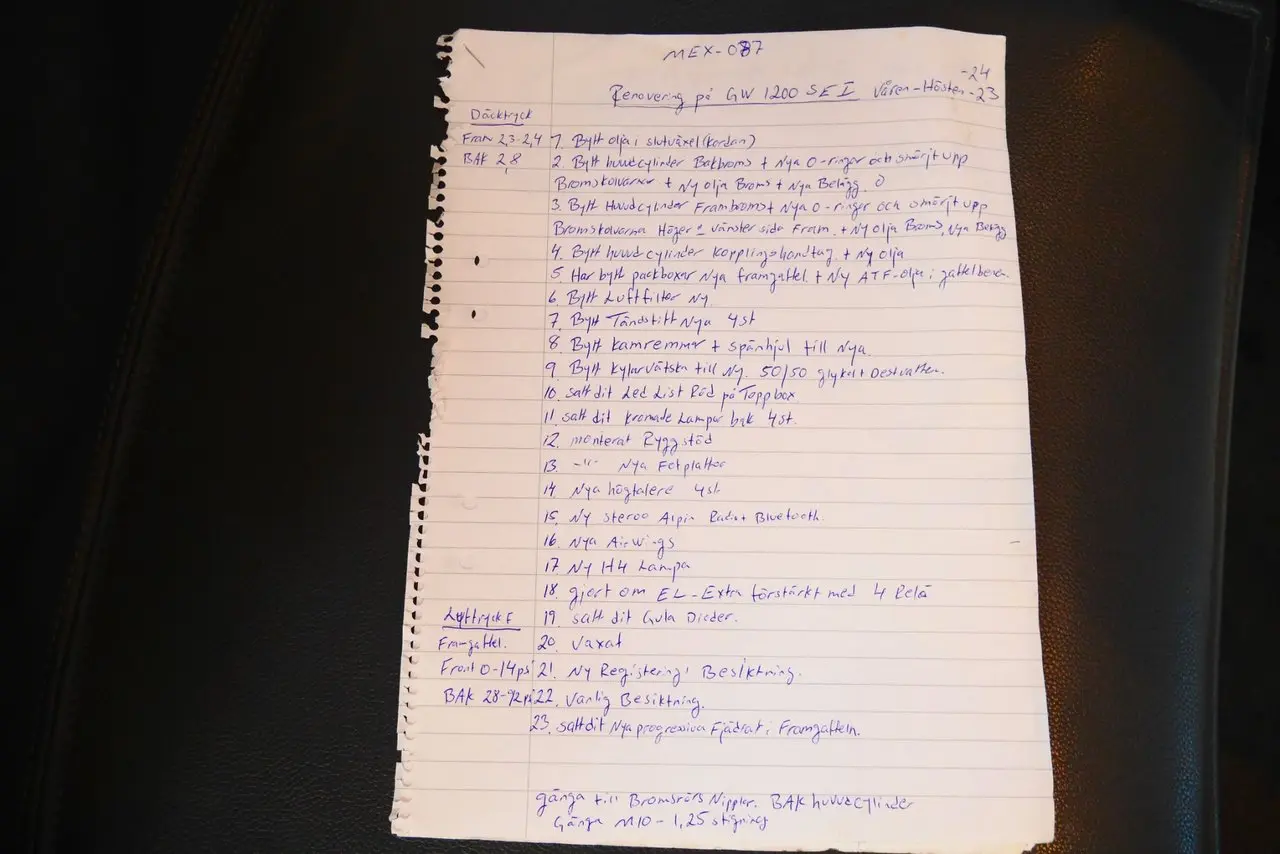 MEX-087
-24
Renovering på GW 1200 SEI Våren-Hösten-23
Däcktryck
Fram 2,3-2,4
BAK 2,8
1. Bytt olja i slutväxel (kardan)
2. Bytt huvudcylinder Bakbroms + Nya O-ringar och smörjt upp
Bromskolvarna + Ny olja Broms + Nya Belägg.
3. Bytt Huvudcylinder Frambroms + Nya O-ringar och smörjt upp
Bromskolvarna Höger o vänster sida Fram. + Ny olja Broms, Nya Belägg
4. Bytt huvudcylinder kopplingshandtag + Ny olja
5. Har bytt packboxar Nya framgaffel. + Ny ATF-olja i gaffelbenen.
6. Bytt Luftfilter Ny.
7. Bytt Tändstift Nya 4st
8. Bytt kamremmar + spänhjul till Nya.
9. Bytt kylarvätska till Ny. 50/50 glykol + Destvatten.
10. satt dit Led List Röd på Toppbox
11. satt dit kromade Lampor bak 4st.
12. monterat Ryggstöd
13. -"- Nya Fotplattor
14. Nya högtalere 4st.
15. Ny stereo Alpin Radio+ Bluetooth.
16. Nya AirWings
17. Ny H4 Lampa
18. gjort om EL-Extra förstärkt med 4 Relä
19. satt dit Gula Dioder.
20. Vaxat
21. Ny Registering, Besiktning.
22. Vanlig Besiktning.
23. satt dit Nya progressiva Fjädrar i Framgaffeln.
Lufttryck
Framgaffel.
Front 0-14psi
BAK 28-42psi
gänga till Bromsrörs Nipplar. BAK huvudcylinder
Gänga M10-1,25 stigning